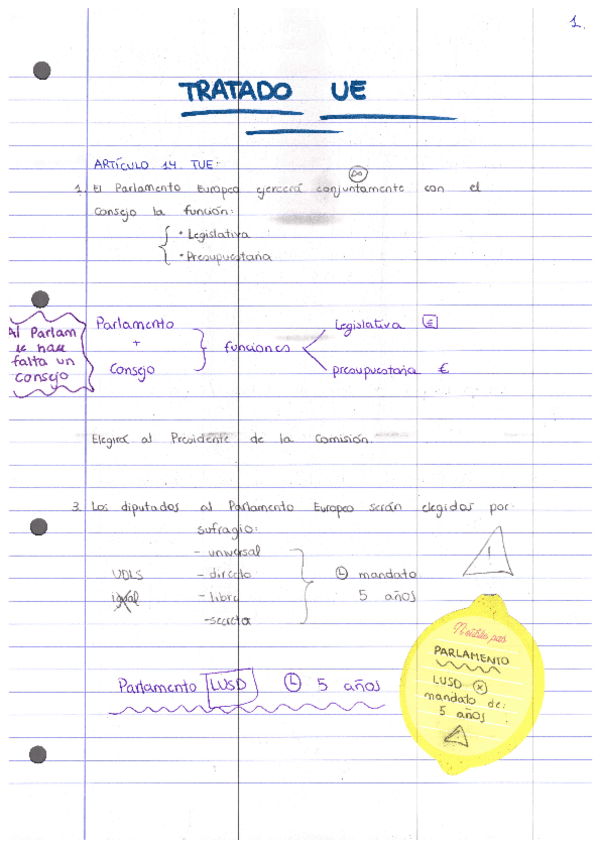 1.
TRATADO UE
ARTÍCULO 14 TUE:
1. El Parlamento Europeo ejercerá conjuntamente con el
Consejo la función:
• Legislativa
• Presupuestaria
Al Parlam
le hace
falta un
consejo
Parlamento
+
Consejo
funciones
Legislativa
presupuestaria €
Elegirá al Presidente de la Comisión.
3. Los diputados al Parlamento Europeo serán elegidos por:
sufragio:
- universal
- directo
- libre
- secreto
UDLS
igual
L mandato
5 años
!
Parlamento LUSD L 5 años
PARLAMENTO
LUSD
mandato de:
5 años